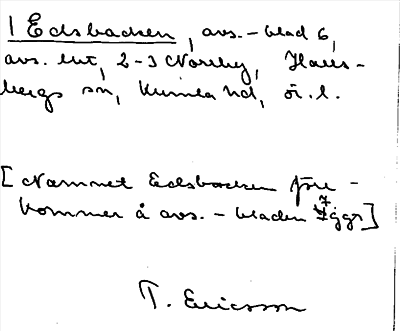 1 Edsbacken, avs.-blad 6,
avs. lut, 2-3 Norrby, Halls-
bergs sn, Kumla hd, ör.l.
[Namnet Edsbacken före-
kommer å avs.-bladen 7 ggr]
T. Ericsson